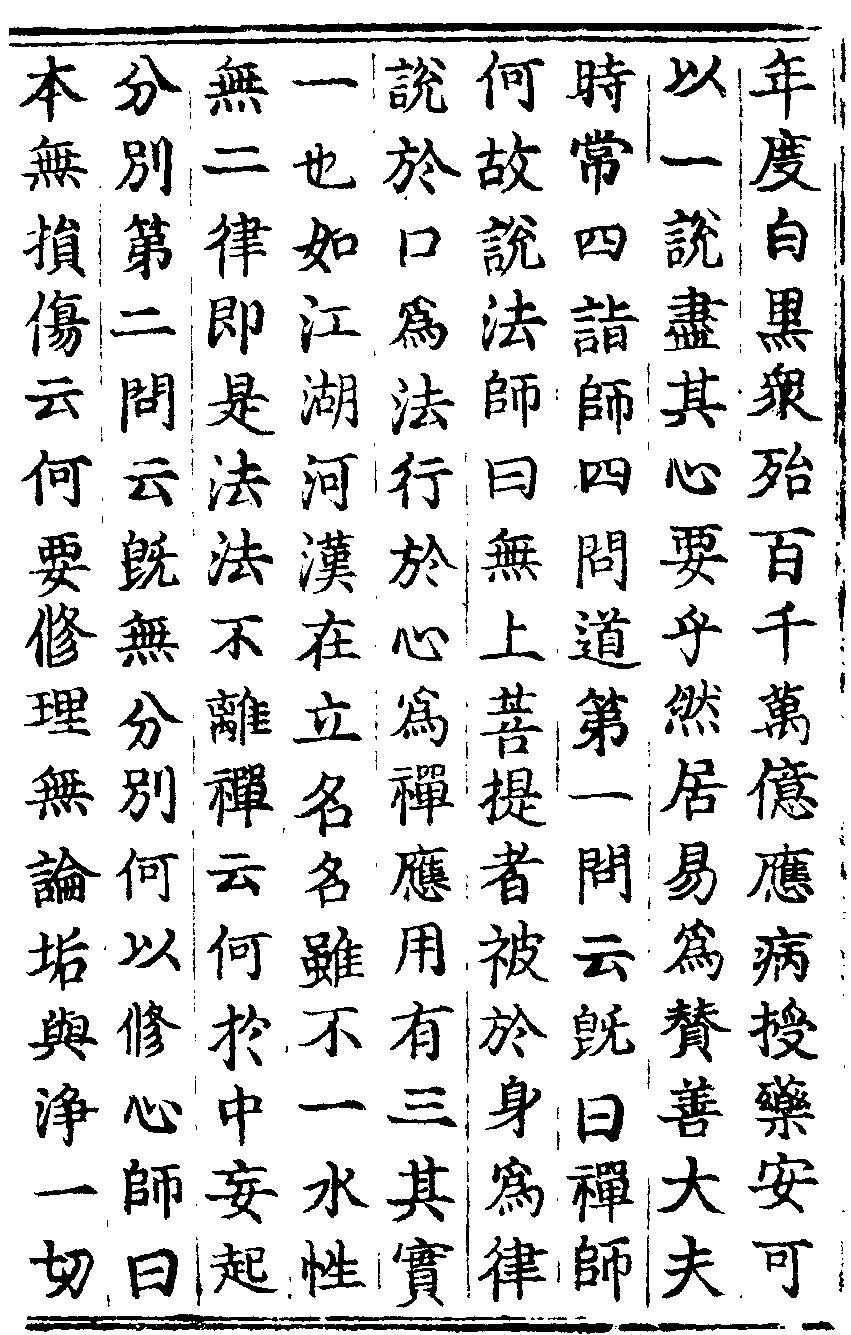 年度白黒衆殆百千萬億應病授藥安可
以一說盡其心要乎然居易爲賛善大夫
時常四詣師四問道第一問云旣曰禪師
何故說法師曰無上菩提者被於身爲律
說於口爲法行於心爲禪應用有三其實
一也如江湖河漢在立名名雖不一水性
無二律即是法法不離禪云何於中妄起
分別第二問云旣無分別何以修心師曰
本無損傷云何要修理無論垢與浄一切